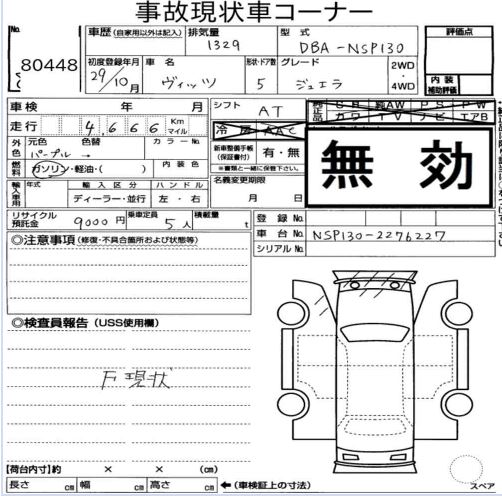 事故現状車コーナー
No.
80448
車歴 (自家用以外は記入)
排気量
1329
型式
DBA-NSP130
評価点
初度登録年月
29年10月
車名
ヴィッツ
形状・ドア数
5
グレード
ジュエラ
2WD
・
4WD
内装
補助評価
車検 年 月
シフト
AT
走行 4,666 Km マイル
冷房 AAC
無効
外色
元色 色替
パープル→
カラーNo.
新車整備手帳
(保証書付)
有・無
※書類と一緒に保管下さい。
燃料
ガソリン・軽油・( )
内装色
輸入車用
年式
輸入区分
ディーラー・並行
ハンドル
左・右
名義変更期限
月 日
リサイクル
預託金
9000円
乗車定員
5人
積載量
t
登録No.
車台No. NSP130-2276227
シリアルNo.
◎注意事項 (修復・不具合箇所および状態等)
◎検査員報告 (USS使用欄)
F現状
[荷台内寸]約 × × (cm)
長さ cm 幅 cm 高さ cm ←(車検証上の寸法)
スペア